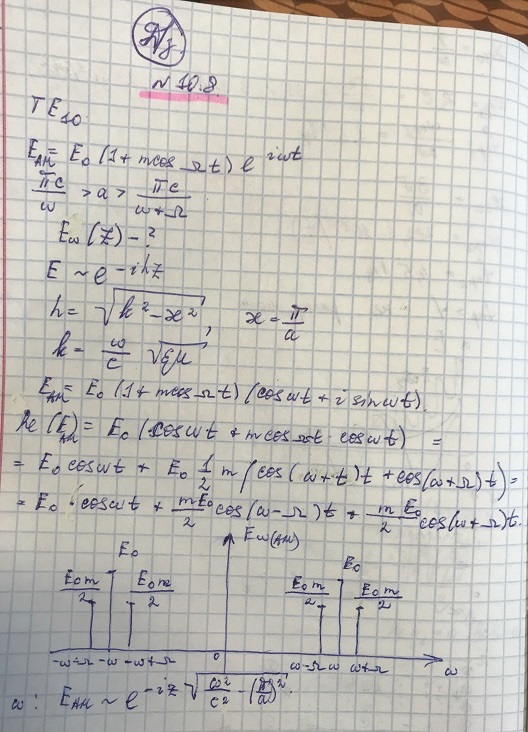 Дз
N 10.8
TE₁₀
E_АМ = E₀ (1 + m cos Ωt) e^{iωt}
πc/ω > a > πc/(ω+Ω)
E_ω(z) - ?
E ~ e^{-ihz}
h = √(k² - æ²), æ = π/a
k = ω/c √(εμ)
E_АМ = E₀ (1 + m cos Ωt) (cos ωt + i sin ωt).
Re(E_АМ) = E₀ (cos ωt + m cos Ωt · cos ωt) =
= E₀ cos ωt + E₀ 1/2 m (cos(ω+t)t + cos(ω+Ω)t) =
= E₀ · cos ωt + mE₀/2 cos(ω-Ω)t + mE₀/2 cos(ω+Ω)t.
E_ω(АМ)
E₀ E₀
E₀m/2 E₀m/2 E₀m/2 E₀m/2
-ω-Ω -ω -ω+Ω 0 ω-Ω ω ω+Ω ω
ω: E_АМ ~ e^{-iz √(ω²/c² - (π/a)²)}.